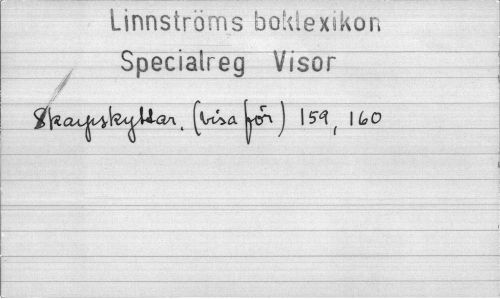 Linnströms boklexikon
Specialreg Visor
Skarpskyttar. (visa för) 159, 160